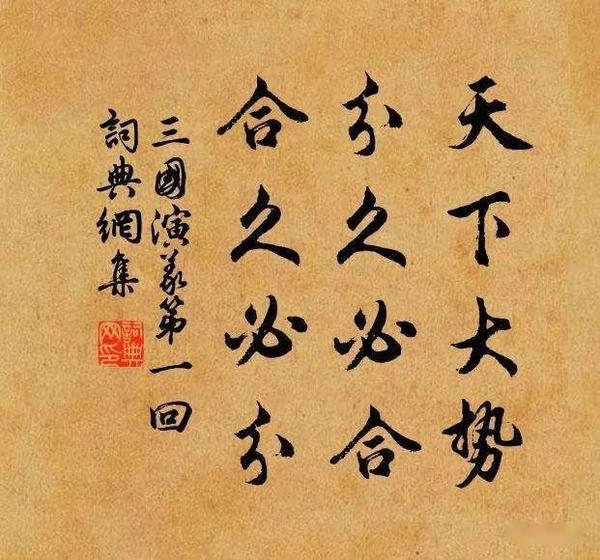 天下大势
分久必合
合久必分
三國演义第一回
詞典網集
詞典网印